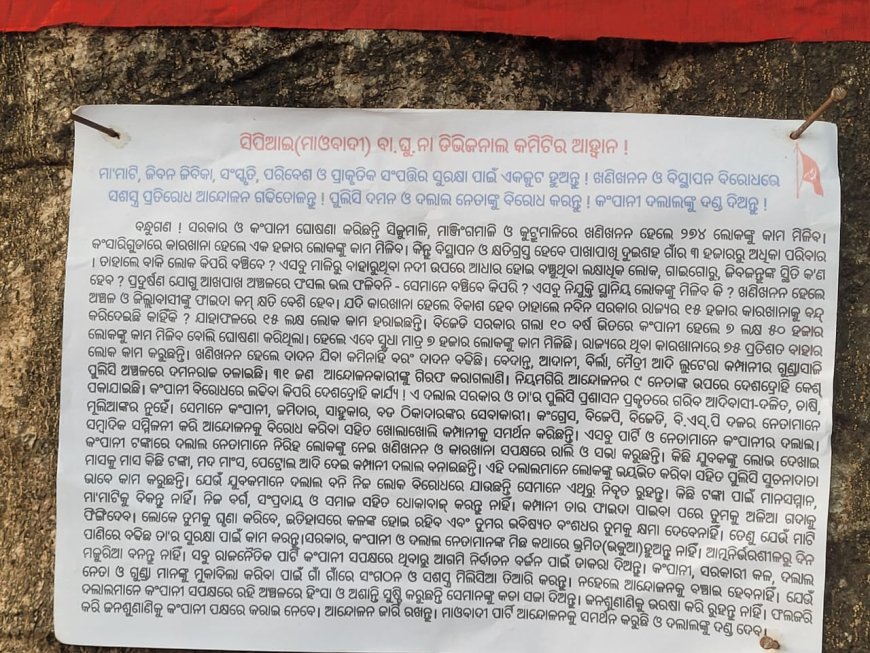 ସିପିଆଇ(ମାଓବାଦୀ) ବା.ଘୁ.ନା ଡିଭିଜନାଲ କମିଟିର ଆହ୍ୱାନ !
ମା'ମାଟି, ଜିବନ ଜିବିକା, ସଂସ୍କୃତି, ପରିବେଶ ଓ ପ୍ରାକୃତିକ ସଂପତ୍ତିର ସୁରକ୍ଷା ପାଇଁ ଏକଜୁଟ ହୁଅନ୍ତୁ ! ଖଣିଖନନ ଓ ବିସ୍ଥାପନ ବିରୋଧରେ
ସଶସ୍ତ୍ର ପ୍ରତିରୋଧ ଆନ୍ଦୋଳନ ଗଢିତୋଳନ୍ତୁ ! ପୁଲିସି ଦମନ ଓ ଦଲାଲ ନେତାଙ୍କୁ ବିରୋଧ କରନ୍ତୁ ! କଂପାନୀ ଦଲାଲଙ୍କୁ ଦଣ୍ଡ ଦିଅନ୍ତୁ !
ବନ୍ଧୁଗଣ ! ସରକାର ଓ କଂପାନୀ ଘୋଷଣା କରିଛନ୍ତି ସିଜୁମାଳି, ମାଞ୍ଜିଂଗମାଳି ଓ କୁଟ୍ରୁମାଳିରେ ଖଣିଖନନ ହେଲେ ୨୭୪ ଲୋକଙ୍କୁ କାମ ମିଳିବ।
କଂସାରିଗୁଡାରେ କାରଖାନା ହେଲେ ଏକ ହଜାର ଲୋକଙ୍କୁ କାମ ମିଳିବ। କିନ୍ତୁ ବିସ୍ଥାପନ ଓ କ୍ଷତିଗ୍ରସ୍ତ ହେବେ ପାଖାପାଖି ଦୁଇଶହ ଗାଁର ୩ ହଜାରରୁ ଅଧିକା ପରିବାର
। ତାହାଲେ ବାକି ଲୋକ କିପରି ବଞ୍ଚିବେ ? ଏସବୁ ମାଳିରୁ ବାହାରୁଥିବା ନଦୀ ଉପରେ ଆଧାର ହୋଇ ବଞ୍ଚୁଥିବା ଲକ୍ଷାଧିକ ଲୋକ, ଗାଇଗୋରୁ, ଜିବଜନ୍ତୁଙ୍କ ସ୍ଥିତି କ'ଣ
ହେବ ? ପ୍ରଦୁର୍ଷଣ ଯୋଗୁ ଆଖପାଖ ଅଞ୍ଚଳରେ ଫସଲ ଭଲ ଫଳିବନି - ସେମାନେ ବଞ୍ଚିବେ କିପରି ? ଏସବୁ ନିଯୁକ୍ତି ସ୍ଥାନିୟ ଲୋକଙ୍କୁ ମିଳିବ କି ? ଖଣିଖନନ ହେଲେ
ଅଞ୍ଚଳ ଓ ଜିଲ୍ଲାବାସୀଙ୍କୁ ଫାଇଦା କମ୍ କ୍ଷତି ବେଶି ହେବ। ଯଦି କାରଖାନା ହେଲେ ବିକାଶ ହେବ ତାହାଲେ ନବିନ ସରକାର ରାଜ୍ୟର ୧୫ ହଜାର କାରଖାନାକୁ ବନ୍ଦ୍
କରିଦେଇଛି କାହିଁକି ? ଯାହାଫଳରେ ୧୫ ଲକ୍ଷ ଲୋକ କାମ ହରାଇଛନ୍ତି। ବିଜେଡି ସରକାର ଗଲା ୧୦ ବର୍ଷ ଭିତରେ କଂପାନୀ ହେଲେ ୭ ଲକ୍ଷ ୫୦ ହଜାର
ଲୋକଙ୍କୁ କାମ ମିଳିବ ବୋଲି ଘୋଷଣା କରିଥିଲା। ହେଲେ ଏବେ ସୁଧା ମାତ୍ର ୭ ହଜାର ଲୋକଙ୍କୁ କାମ ମିଳିଛି। ରାଜ୍ୟରେ ଥିବା କାରଖାନାରେ ୭୫ ପ୍ରତିଶତ ବାହାର
ଲୋକ କାମ କରୁଛନ୍ତି। ଖଣିଖନନ ହେଲେ ଦାଦନ ଯିବା କମିନାହିଁ ବରଂ ଦାଦନ ବଢିଛି। ବେଦାନ୍ତ, ଆଦାନୀ, ବିର୍ଲା, ମୈତ୍ରୀ ଆଦି ଲୁଟେରା କମ୍ପାନୀର ଗୁଣ୍ଡାସାଜି
ପୁଲିସି ଅଞ୍ଚଳରେ ଦମନରାଜ ଚଳାଇଛି। ୩୧ ଜଣ ଆନ୍ଦୋଳନକାରୀଙ୍କୁ ଗିରଫ କରାଗଲାଣି। ନିୟମଗିରି ଆନ୍ଦୋଳନର ୯ ନେତାଙ୍କ ଉପରେ ଦେଶଦ୍ରୋହି କେଶ୍
ପକାଯାଇଛି। କଂପାନୀ ବିରୋଧରେ ଲଢିବା କିପରି ଦେଶଦ୍ରୋହି କାର୍ଯ୍ୟ ! ଏ ଦଲାଲ ସରକାର ଓ ତା'ର ପୁଲିସି ପ୍ରଶାସନ ପ୍ରକୃତରେ ଗରିବ ଆଦିବାସୀ-ଦଳିତ, ଚାଷି,
ମୂଲିଆଙ୍କର ନୁହେଁ। ସେମାନେ କଂପାନୀ, ଜମିଦାର, ସାହୁକାର, ବଡ ଠିକାଦାରଙ୍କର ସେବାକାରୀ। କଂଗ୍ରେସ, ବିଜେପି, ବିଜେଡି, ବି.ଏସ୍.ପି ଦଳର ନେତାମାନେ
ସମ୍ବାଦିକ ସମ୍ମିଳନୀ କରି ଆନ୍ଦୋଳନକୁ ବିରୋଧ କରିବା ସହିତ ଖୋଲାଖୋଲି କମ୍ପାନୀକୁ ସମର୍ଥନ କରିଛନ୍ତି। ଏସବୁ ପାର୍ଟି ଓ ନେତାମାନେ କଂପାନୀର ଦଲାଲ।
କଂପାନୀ ଟଙ୍କାରେ ଦଲାଲ ନେତାମାନେ ନିରିହ ଲୋକଙ୍କୁ ନେଇ ଖଣିଖନନ ଓ କାରଖାନା ସପକ୍ଷରେ ରାଲି ଓ ସଭା କରୁଛନ୍ତି। କିଛି ଯୁବକଙ୍କୁ ଲୋଭ ଦେଖାଇ
ମାସକୁ ମାସ କିଛି ଟଙ୍କା, ମଦ ମାଂସ, ପେଟ୍ରୋଲ ଆଦି ଦେଇ କମ୍ପାନୀ ଦଲାଲ ବନାଇଛନ୍ତି। ଏହି ଦଲାଲମାନେ ଲୋକଙ୍କୁ ଭୟଭିତ କରିବା ସହିତ ପୁଲିସି ସୁଚନାଦାତା
ଭାବେ କାମ କରୁଛନ୍ତି। ଯେଉଁ ଯୁବକମାନେ ଦଲାଲ ବନି ନିଜ ଲୋକ ବିରୋଧରେ ଯାଉଛନ୍ତି ସେମାନେ ଏଥିରୁ ନିବୃତ ରୁହନ୍ତୁ। କିଛି ଟଙ୍କା ପାଇଁ ମାନସମ୍ମାନ,
ମା'ମାଟିକୁ ବିକନ୍ତୁ ନାହିଁ। ନିଜ ବର୍ଗ, ସଂପ୍ରଦାୟ ଓ ସମାଜ ସହିତ ଧୋକାବାଜ୍ କରନ୍ତୁ ନାହିଁ। କମ୍ପାନୀ ତାର ଫାଇଦା ପାଇବା ପରେ ତୁମକୁ ଅଳିଆ ଗଦାକୁ
ଫିଙ୍ଗିଦେବ। ଲୋକେ ତୁମକୁ ଘୃଣା କରିବେ, ଇତିହାସରେ କଳଙ୍କ ହୋଇ ରହିବ ଏବଂ ତୁମର ଭବିଷ୍ୟତ ବଂଶଧର ତୁମକୁ କ୍ଷମା ଦେବେନାହିଁ। ତେଣୁ ଯେଉଁ ମାଟି
ପାଣିରେ ବଢିଛ ତା'ର ସୁରକ୍ଷା ପାଇଁ କାମ କରନ୍ତୁ।ସରକାର, କଂପାନୀ ଓ ଦଲାଲ ନେତାମାନଙ୍କ ମିଛ କଥାରେ ଭ୍ରମିତ(ଭକୁଆ)ହୁଅନ୍ତୁ ନାହିଁ। ଆତ୍ମନିର୍ଭରଶୀଳରୁ ଦିନ
ମଜୁରିଆ ବନନ୍ତୁ ନାହିଁ। ସବୁ ରାଜନୈତିକ ପାର୍ଟି କଂପାନୀ ସପକ୍ଷରେ ଥିବାରୁ ଆଗାମି ନିର୍ବାଚନ ବର୍ଜନ ପାଇଁ ଡାକରା ଦିଅନ୍ତୁ। କଂପାନୀ, ସରକାରୀ କଳ, ଦଲାଲ
ନେତା ଓ ଗୁଣ୍ଡା ମାନଙ୍କୁ ମୁକାବିଲା କରିବା ପାଇଁ ଗାଁ ଗାଁରେ ସଂଗଠନ ଓ ସଶସ୍ତ୍ର ମିଲିସିଆ ତିଆରି କରନ୍ତୁ। ନହେଲେ ଆନ୍ଦୋଳନକୁ ବଞ୍ଚାଇ ହେବନାହିଁ। ଯେଉଁ
ଦଲାଲମାନେ କଂପାନୀ ସପକ୍ଷରେ ରହି ଅଞ୍ଚଳରେ ହିଂସା ଓ ଅଶାନ୍ତି ସୃଷ୍ଟି କରୁଛନ୍ତି ସେମାନଙ୍କୁ କଡା ସଜା ଦିଅନ୍ତୁ। ଜନଶୁଣାଣିକୁ ଭରଷା କରି ରୁହନ୍ତୁ ନାହିଁ। ଫଲଜରି
କରି ଜନଶୁଣାଣିକୁ କଂପାନୀ ପକ୍ଷରେ କରାଇ ନେବେ। ଆନ୍ଦୋଳନ ଜାରି ରଖନ୍ତୁ। ମାଓବାଦୀ ପାର୍ଟି ଆନ୍ଦୋଳନକୁ ସମର୍ଥନ କରୁଛି ଓ ଦଲାଲଙ୍କୁ ଦଣ୍ଡ ଦେବ।